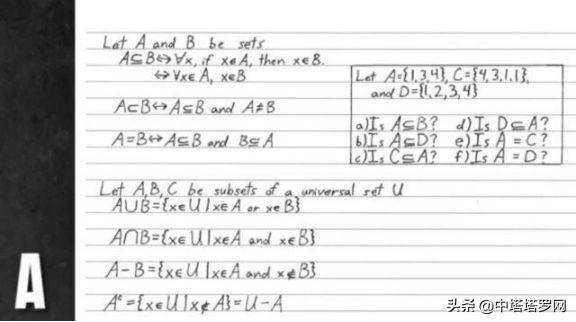 Let A and B be sets
A⊆B⇔∀x, if x∈A, then x∈B.
⇔∀x∈A, x∈B
A⊂B⇔A⊆B and A≠B
A=B⇔A⊆B and B⊆A
Let A={1,3,4}, C={4,3,1,1},
and D={1,2,3,4}
a) Is A⊆B? d) Is D⊆A?
b) Is A⊆D? e) Is A = C?
c) Is C⊆A? f) Is A = D?
Let A,B,C be subsets of a universal set U
A∪B={x∈U|x∈A or x∈B}
A∩B={x∈U|x∈A and x∈B}
A-B={x∈U|x∈A and x∉B}
Aᶜ={x∈U|x∉A}=U-A
A
头条 @中塔塔罗网